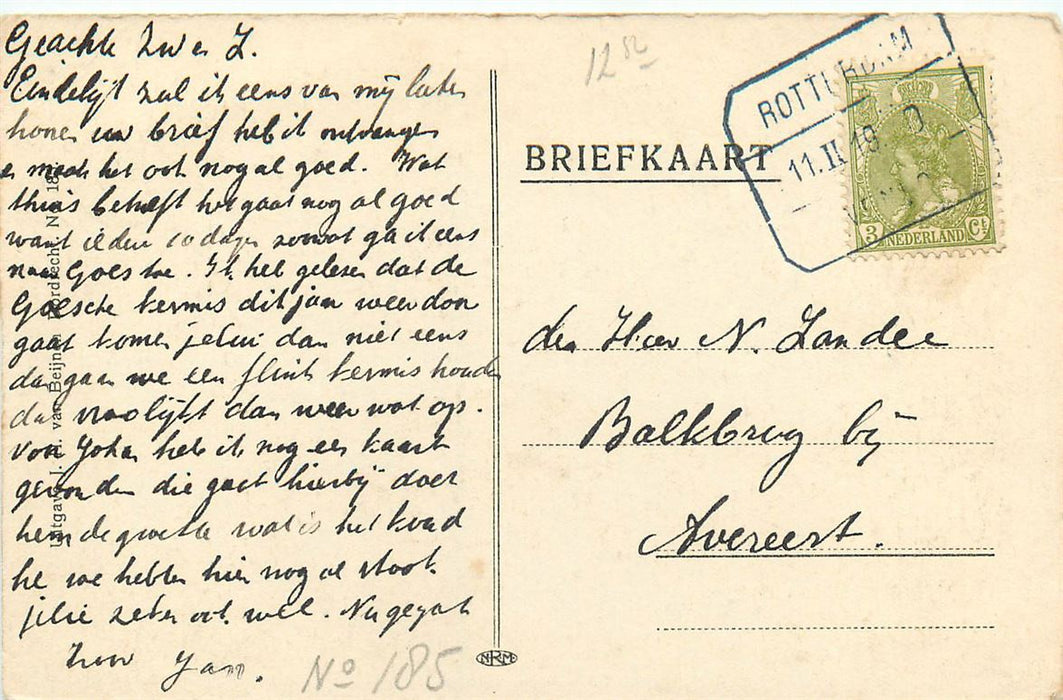 Geachte Zw en Z.
Eindelijk zal ik eens van mij laten
horen uw brief heb ik ontvangen
maak het ook nogal goed. Wat
thuis betreft het gaat nog al goed
want iedere 10 dagen zowat ga ik eens
naar Goes toe. Ik heb gelezen dat de
Goesche kermis dit jaar weer door
gaat komen jelui dan niet eens
dan gaan we een flink kermis houden
dan vroolijkt dan weer wat op.
van Johan heb ik nog een kaart
gevonden die gaat hierbij doet
hem de groette wat is het koud
he we hebben hier nog al
jelie zeker ook wel. Nu gegroet
Jan.
No 185
Uitgave J. H. van Beijnen Dordrecht, No 18
12 52
BRIEFKAART
ROTTERDAM
11.II.19
3 Ct
NEDERLAND
den Heer N. Landee
Balkbrug bij
Avereest.
NRM